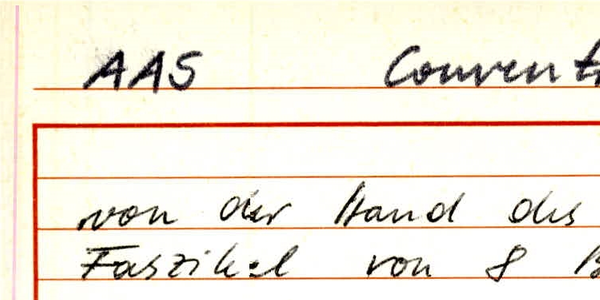 AAS Convent
von der Hand des
Faszikel von 8 B